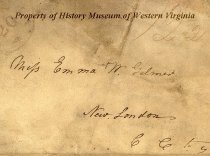 Property of History Museum of Western Virginia
Miss Emma W. Gilmer
New London
C C